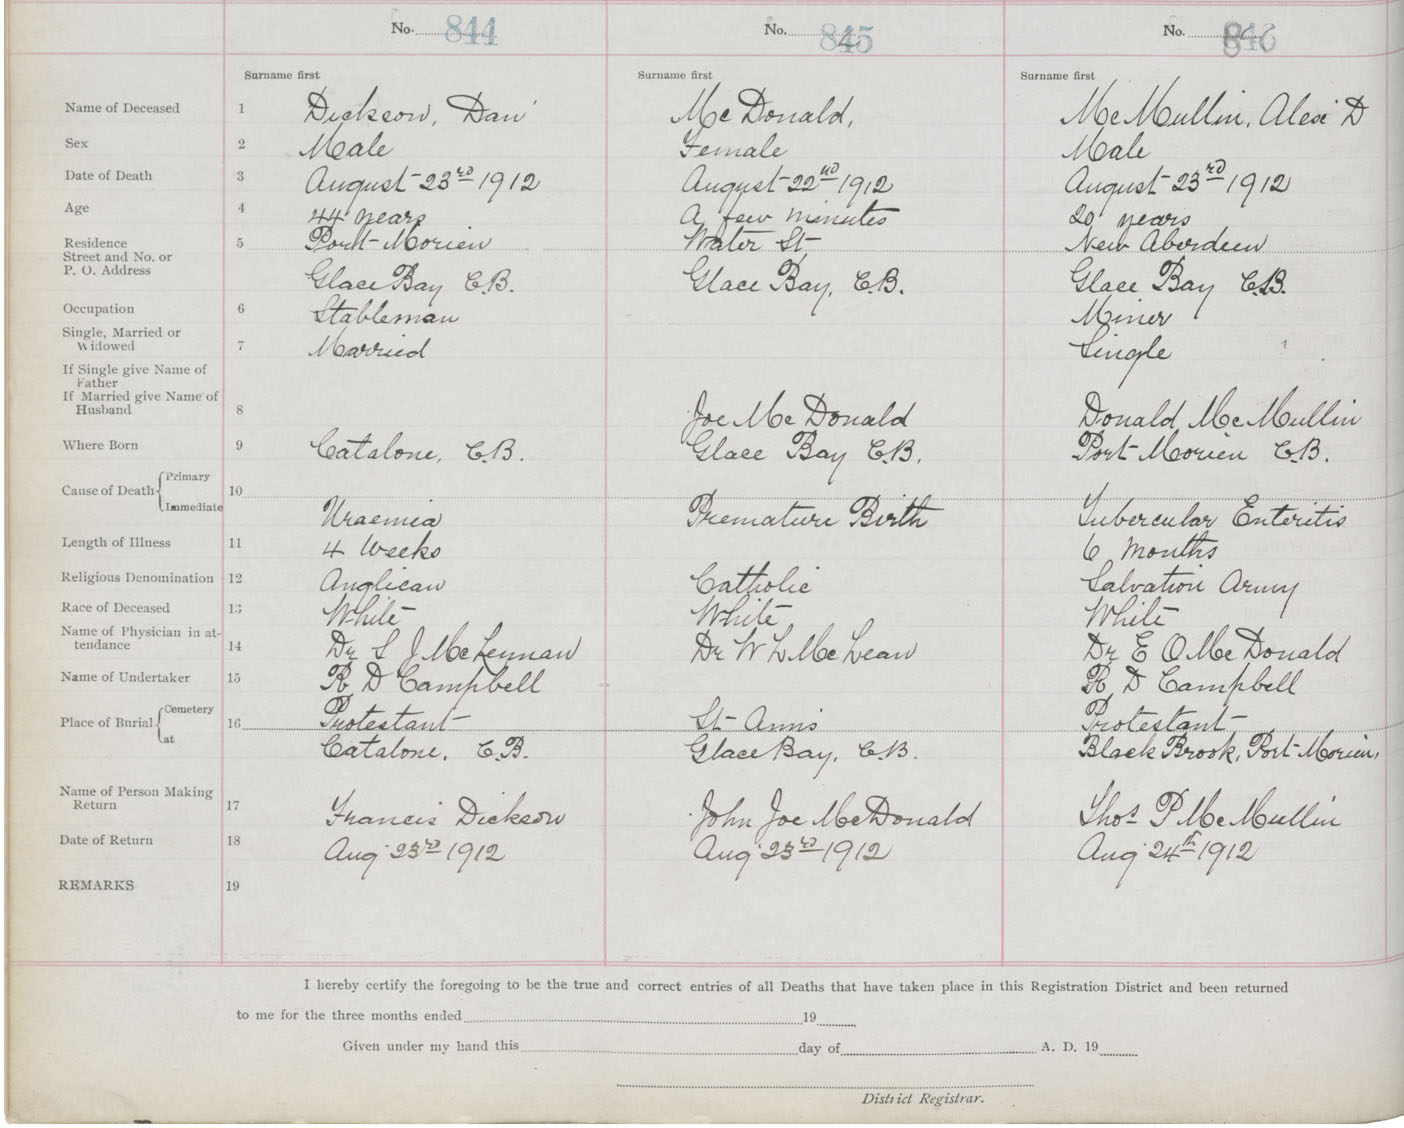 No. 844 No. 845 No. 846
Surname first Surname first Surname first
Name of Deceased 1 Dickson, Dan McDonald, McMullin, Alex D
Sex 2 Male Female Male
Date of Death 3 August 23rd 1912 August 22nd 1912 August 23rd 1912
Age 4 44 years A few minutes 20 years
Residence 5 Port Morien Water St New Aberdeen
Street and No. or
P. O. Address Glace Bay C.B. Glace Bay, C.B. Glace Bay C.B.
Occupation 6 Stableman Miner
Single, Married or
Widowed 7 Married Single
If Single give Name of
Father
If Married give Name of
Husband 8 Joe McDonald Donald McMullin
Where Born 9 Catalone, C.B. Glace Bay C.B. Port Morien C.B.
Primary
Cause of Death 10
Immediate Uraemia Premature Birth Tubercular Enteritis
Length of Illness 11 4 Weeks 6 months
Religious Denomination 12 Anglican Catholic Salvation Army
Race of Deceased 13 White White White
Name of Physician in at-
tendance 14 Dr S J McLennan Dr W L McLean Dr E O McDonald
Name of Undertaker 15 R D Campbell R D Campbell
Cemetery
Place of Burial 16 Protestant St Anns Protestant
at Catalone, C.B. Glace Bay, C.B. Black Brook, Port Morien,
Name of Person Making
Return 17 Francis Dickson John Joe McDonald Thos P McMullin
Date of Return 18 Aug 23rd 1912 Aug 23rd 1912 Aug 24th 1912
REMARKS 19
I hereby certify the foregoing to be the true and correct entries of all Deaths that have taken place in this Registration District and been returned
to me for the three months ended 19
Given under my hand this day of A. D. 19
District Registrar.